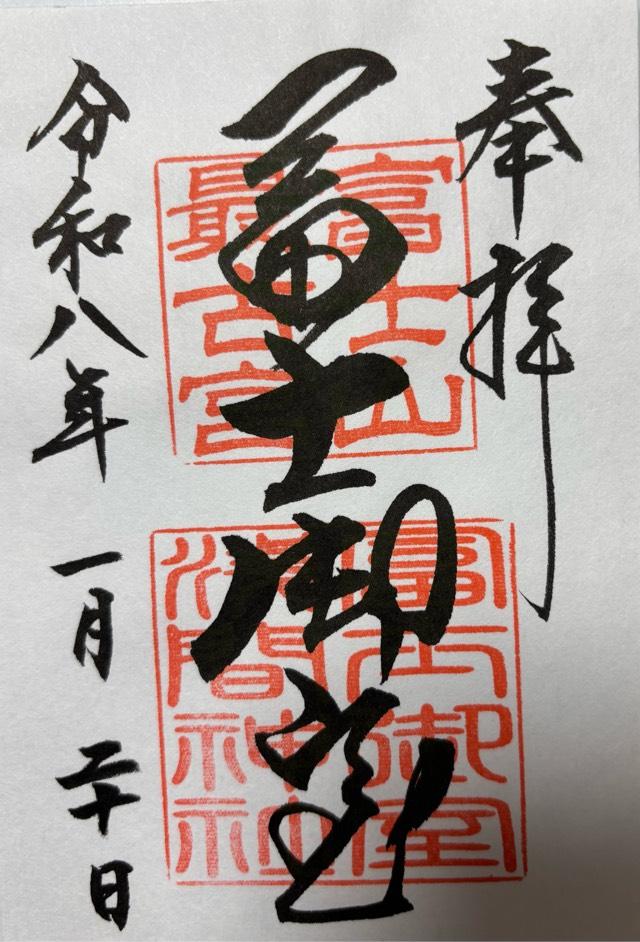 奉拝
冨士御室
令和八年 一月 二十日
富士山
最古宮
冨士御室
浅間神社